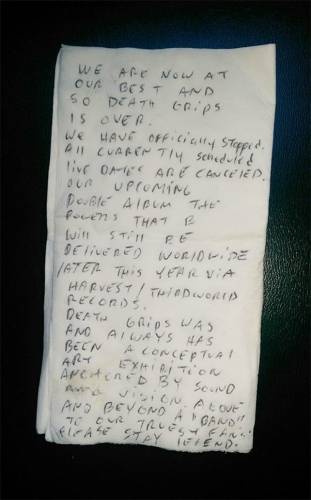 WE ARE NOW AT
OUR BEST AND
SO DEATH GRIPS
IS OVER.
WE HAVE OFFICIALLY STOPPED.
All CURRENTLY scheduled
live DATES ARE CANCELED.
OUR UPCOMING
DOUBLE ALBUM THE
POWERS THAT B
Will STILL BE
DELIVERED WORLDWIDE
LATER THIS YEAR VIA
HARVEST/THIRDWORLD
RECORDS.
DEATH GRIPS WAS
AND ALWAYS HAS
BEEN A CONCEPTUAL
ART EXHIBITION
ANCHORED BY SOUND
AND VISION. ABOVE
AND BEYOND A "BAND"
TO OUR TRUEST FANS,
PLEASE STAY LEGEND.